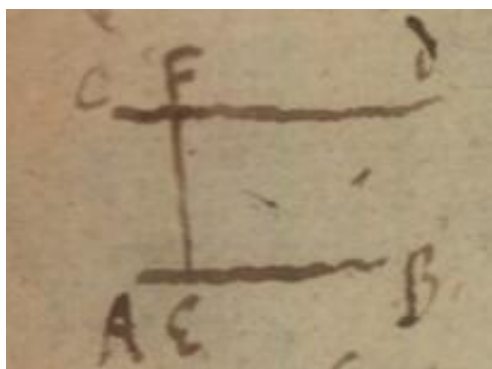 C F D
A E B